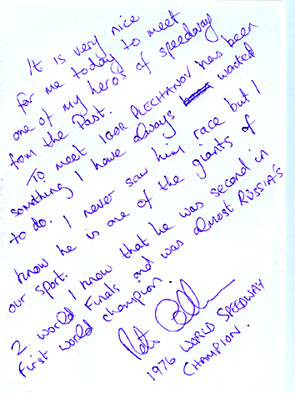 It is very nice
for me today to meet
one of my heros of speedway
from the Past.
To meet IGOR PLECHANOV has been
something I have always wanted
to do. I never saw him race but I
know he is one of the giants of
our sport.
I know that he was second in
2 world Finals and was almost RUSSIA'S
First world champion.
1976 WORLD SPEEDWAY
CHAMPION.